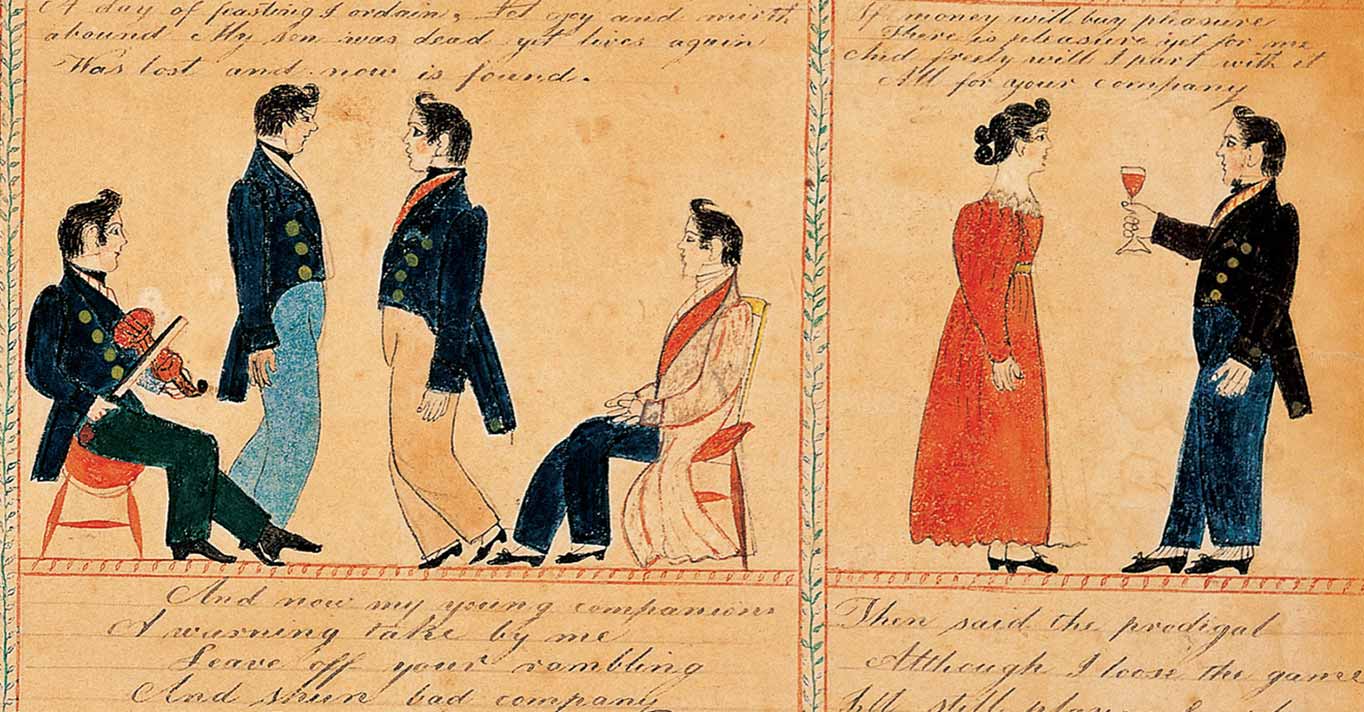 A day of feasting I ordain, Let joy and mirth
abound My son was dead yet lives again
Was lost and now is found.
And now my young companions
A warning take by me
Leave off your rambling
And shun bad company
If money will buy pleasure
There is pleasure yet for me
And freely will I part with it
All for your company
Then said the prodigal
Although I loose the game